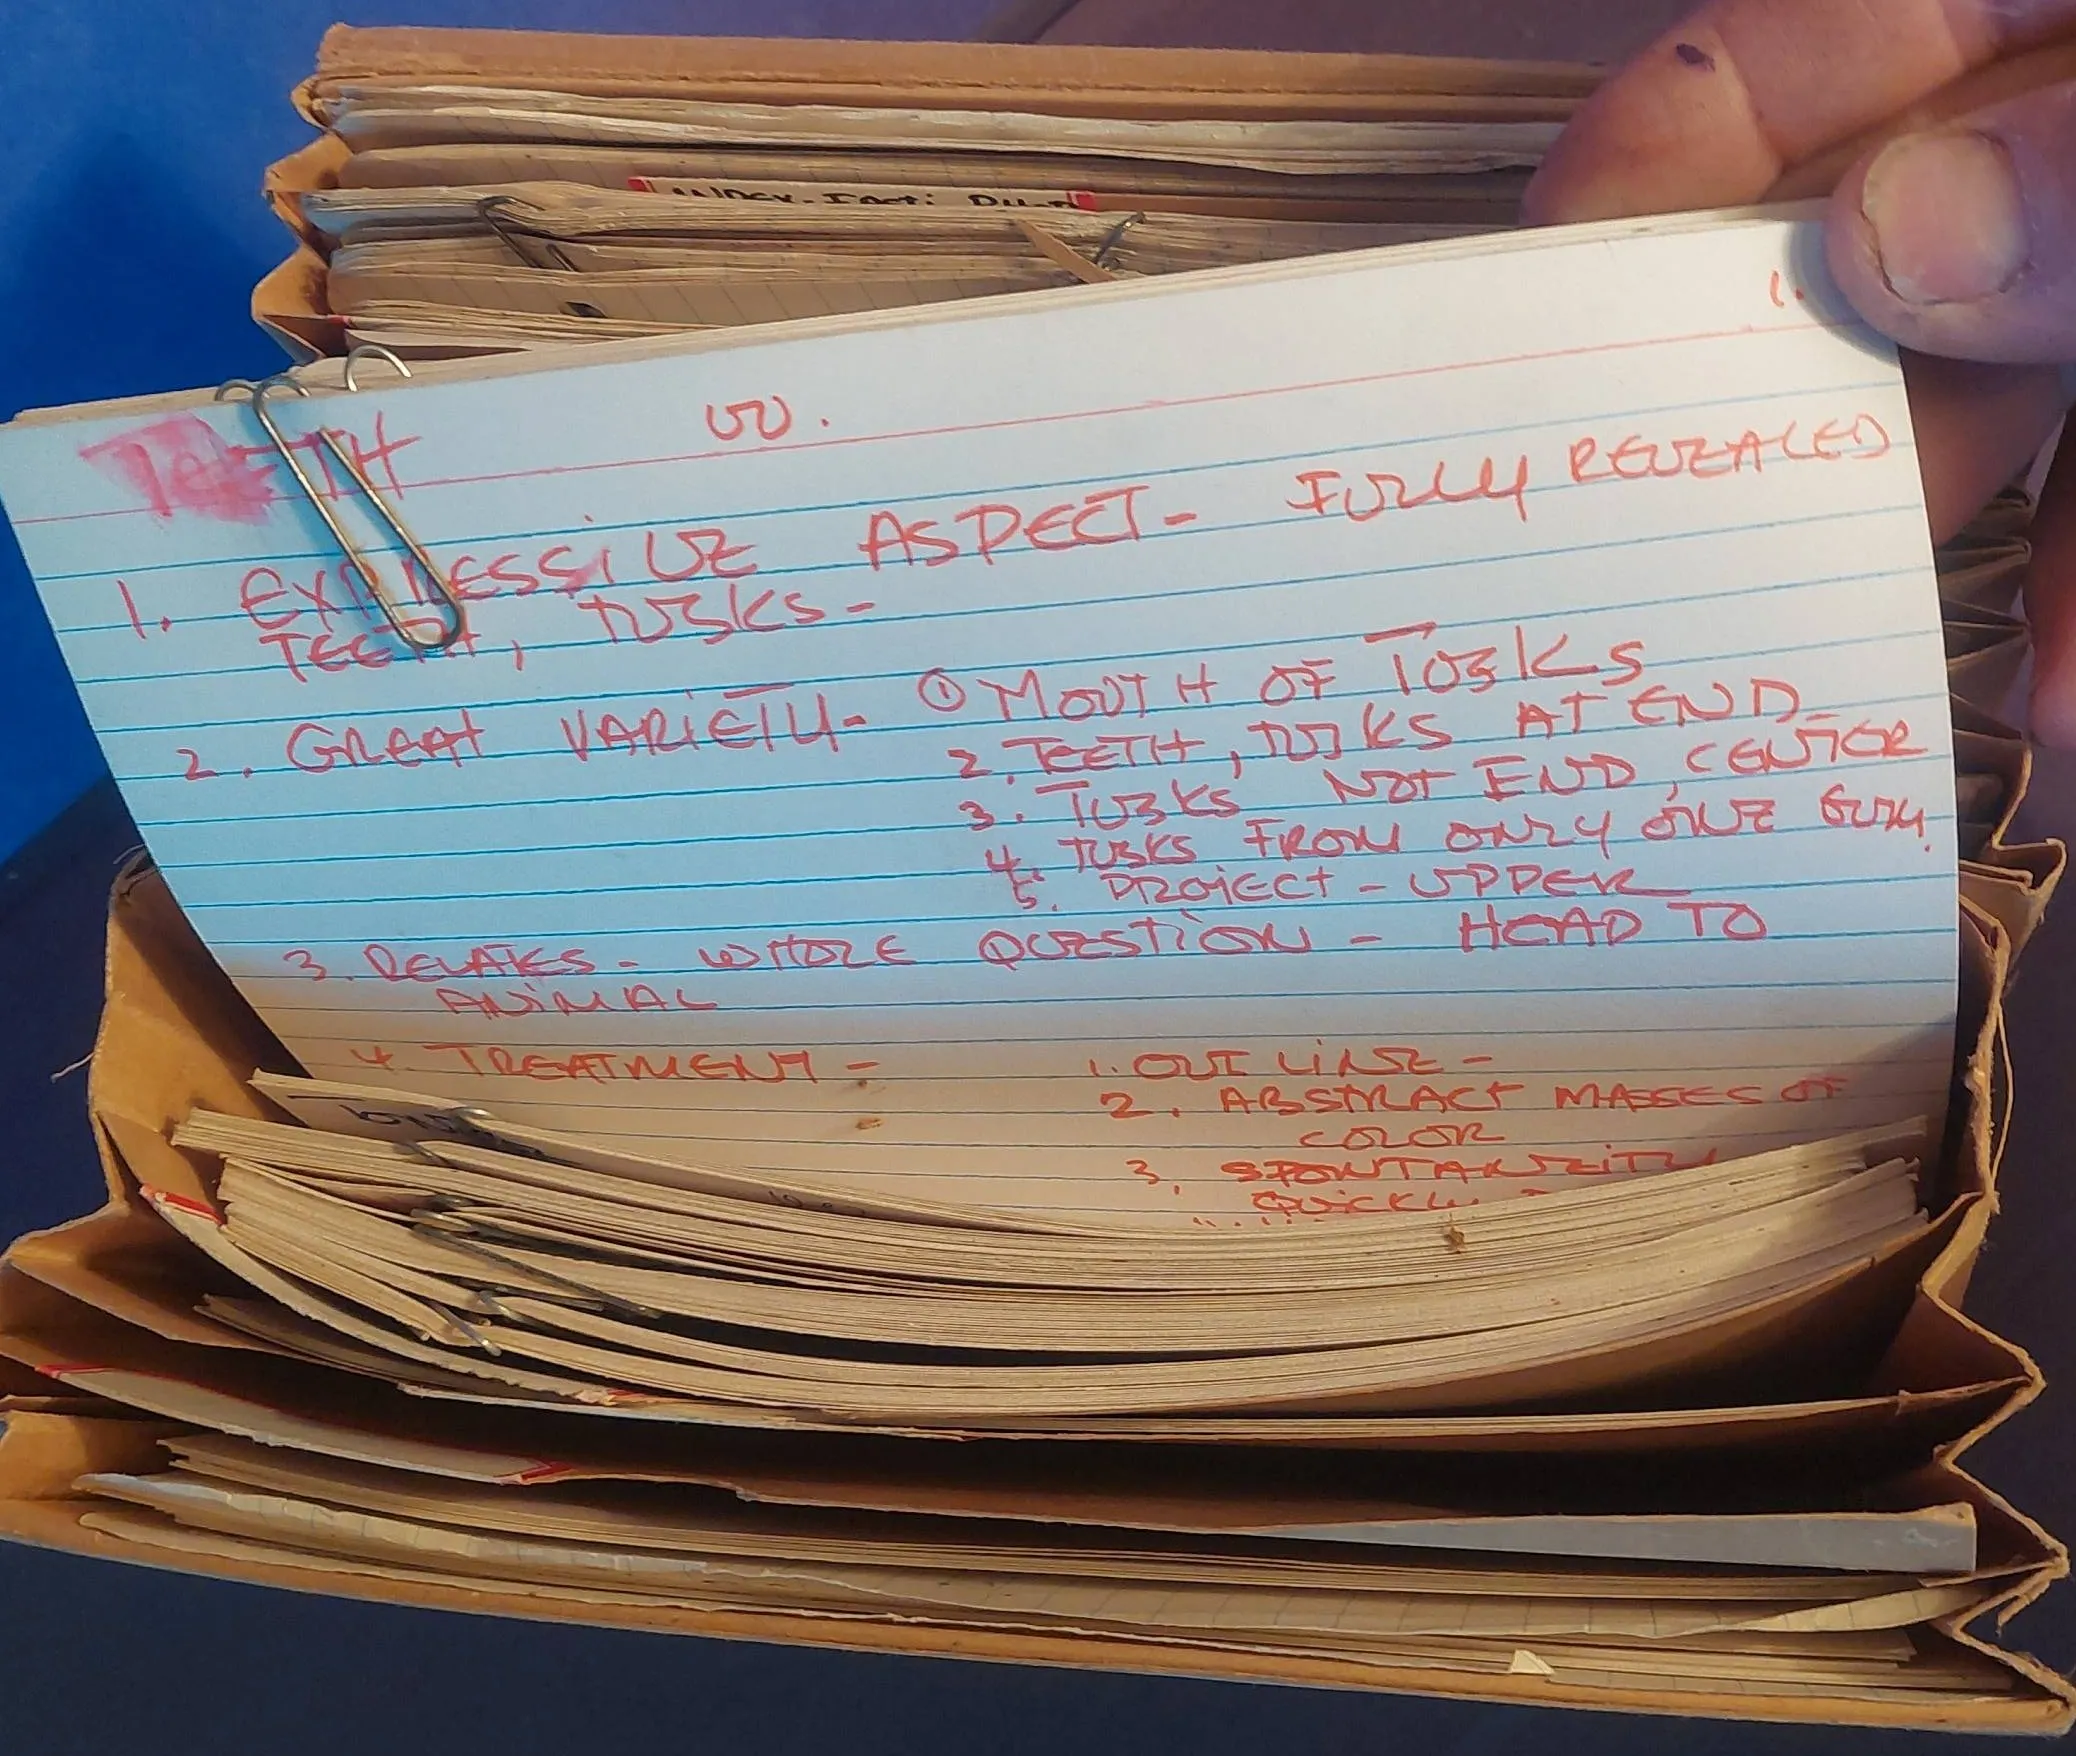 INDEX - FACTI
1.
TEETH
VV.
1. EXPRESSIVE ASPECT - FULLY REVEALED
TEETH, TUSKS -
2. GREAT VARIETY - 1 MOUTH OF TUSKS
2. TEETH, TUSKS AT END
3. TUSKS NOT END, CENTER
4. TUSKS FROM ONLY ONE GUM.
5. PROJECT - UPPER
3. RELATES - WHOLE QUESTION - HEAD TO
ANIMAL
4. TREATMENT - 1. OUTLINE -
2. ABSTRACT MASSES OF
COLOR
3. SPONTANEITY
QUICKLY